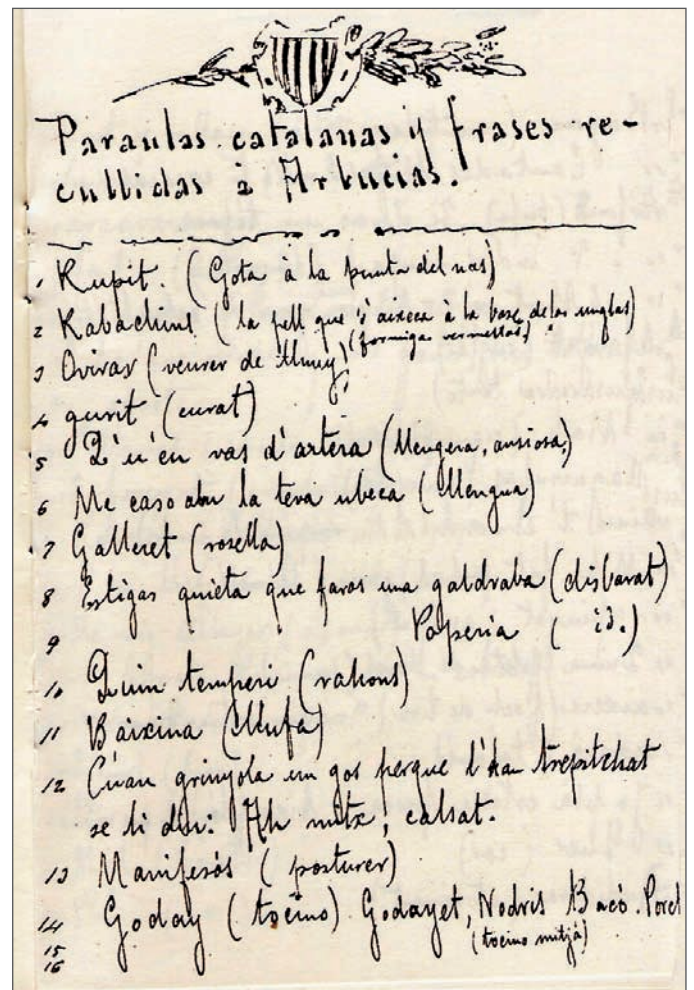 Paraulas catalanas y frases re-
cullidas à Arbucias.
1 Rupit. (Gota à la punta del nas)
2 Rabachins (la pell que s'aixeca à la base de las unglas)
(formigas vermellas)
3 Ovirar (veurer de lluny)
4 gurit (curat)
5 Q'u'en vas d'artèra (Mengera, ansiosa,)
6 Me caso abu la teva ubeca (llengua)
7 Galleret (rosella)
8 Estigas quieta que faras una galdraba (disbarat)
9 " " " " Paperia ( id.)
10 Quin temperi (rahons)
11 Baixina (llufa)
12 Cuan grinyola un gos perque l'han trepitchat
se li diu: Ah mitx, calsat.
13 Manifesós (posturer)
14 Goday (tocino) Godayet, Nodris Bacó. Porcl
(tocino mitjà)
15
16